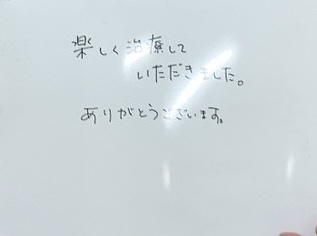 楽しく治療して
いただきました。
ありがとうございます。